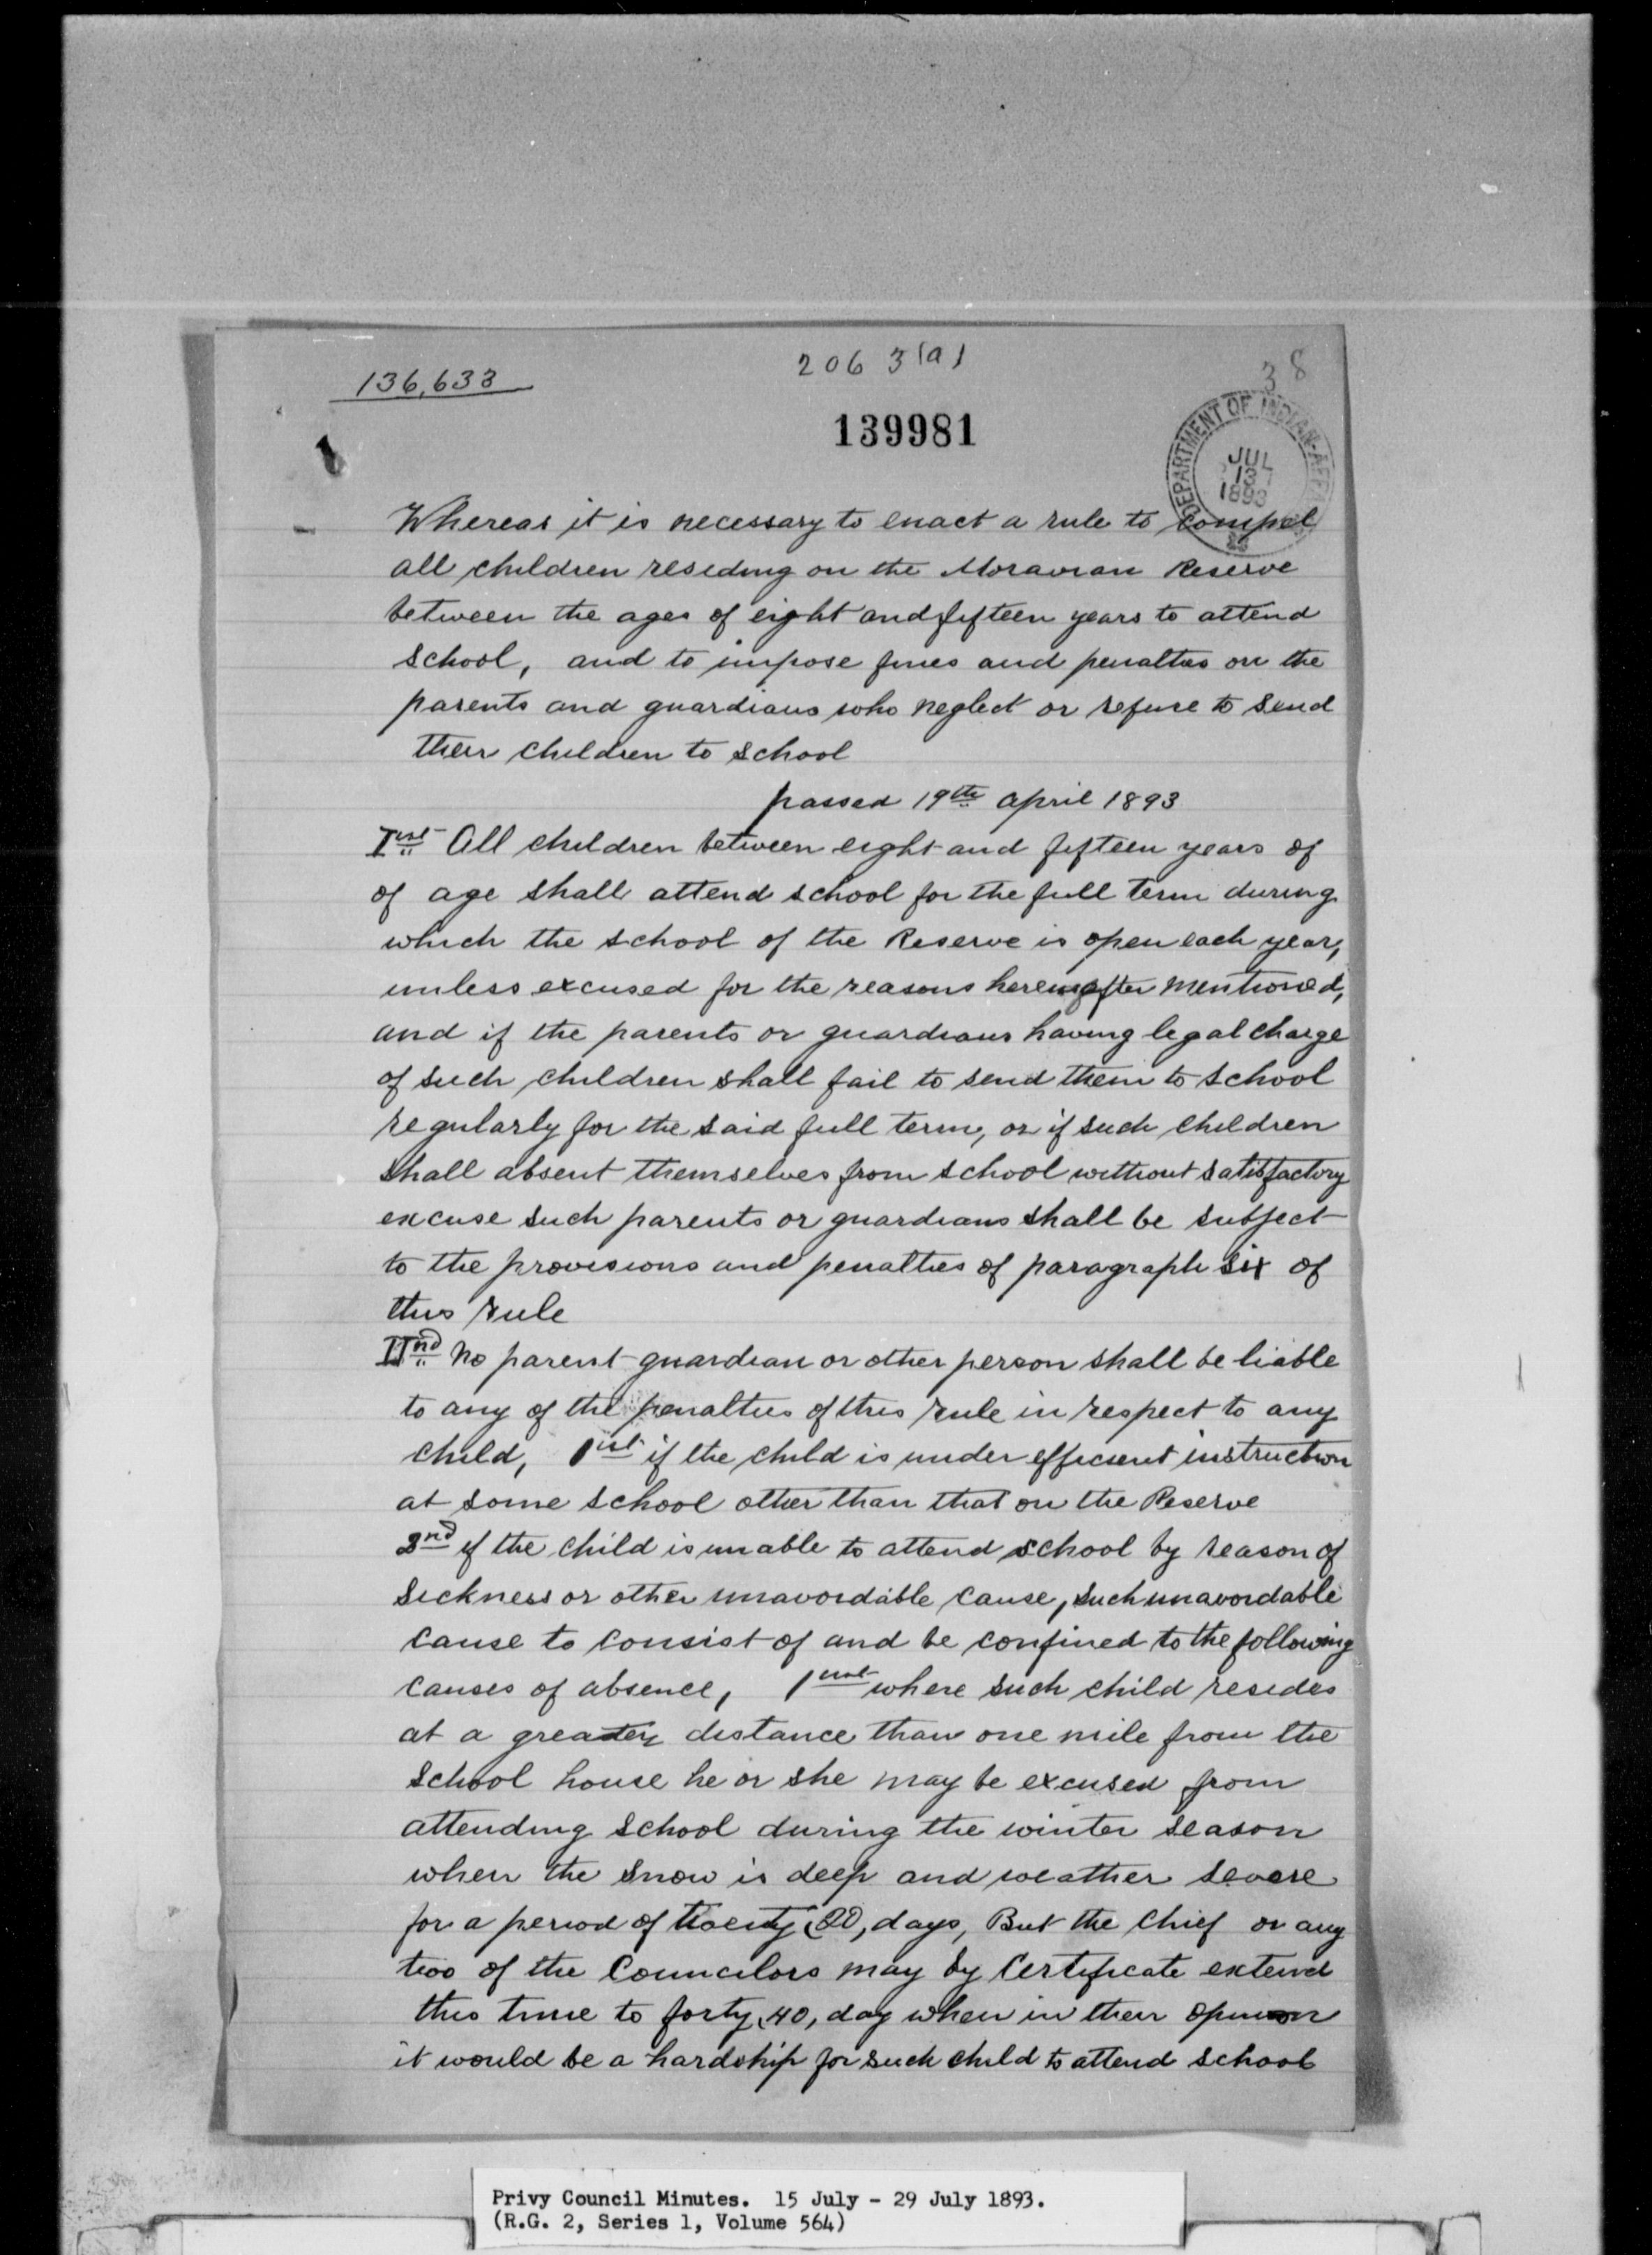 206 3(a)
136,633
38
139981
DEPARTMENT OF INDIAN AFFAIRS
JUL
13
1893
Whereas it is necessary to enact a rule to compel
all children residing on the Moravian Reserve
between the ages of eight and fifteen years to attend
school, and to impose fines and penalties on the
parents and guardians who neglect or refuse to send
their children to school
passed 19th april 1893
Ist All children between eight and fifteen years of
of age shall attend school for the full term during
which the school of the Reserve is open each year,
unless excused for the reasons hereinafter mentioned,
and if the parents or guardians having legal charge
of such children shall fail to send them to school
regularly for the said full term, or if such children
shall absent themselves from school without satisfactory
excuse such parents or guardians shall be subject
to the provisions and penalties of paragraph six of
this rule
IInd No parent guardian or other person shall be liable
to any of the penalties of this rule in respect to any
child, 1st if the child is under efficient instruction
at some school other than that on the Reserve
2nd if the child is unable to attend school by reason of
sickness or other unavoidable cause, such unavoidable
cause to consist of and be confined to the following
causes of absence, 1st where such child resides
at a greater distance than one mile from the
school house he or she may be excused from
attending school during the winter season
when the snow is deep and weather severe
for a period of twenty (20, days, But the Chief or any
two of the Councilors may by Certificate extend
this time to forty, 40, day when in their opinion
it would be a hardship for such child to attend school
Privy Council Minutes. 15 July - 29 July 1893.
(R.G. 2, Series 1, Volume 564)